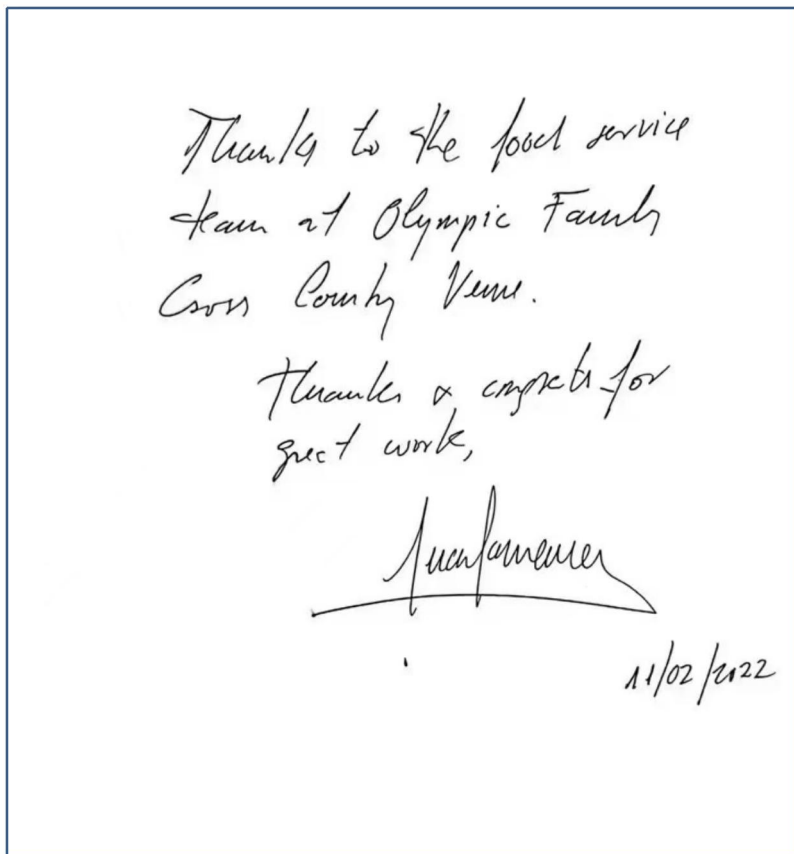 Thanks to the food service
team at Olympic Family
Cross Country Venue.
Thanks & congrats for
great work,
11/02/2022